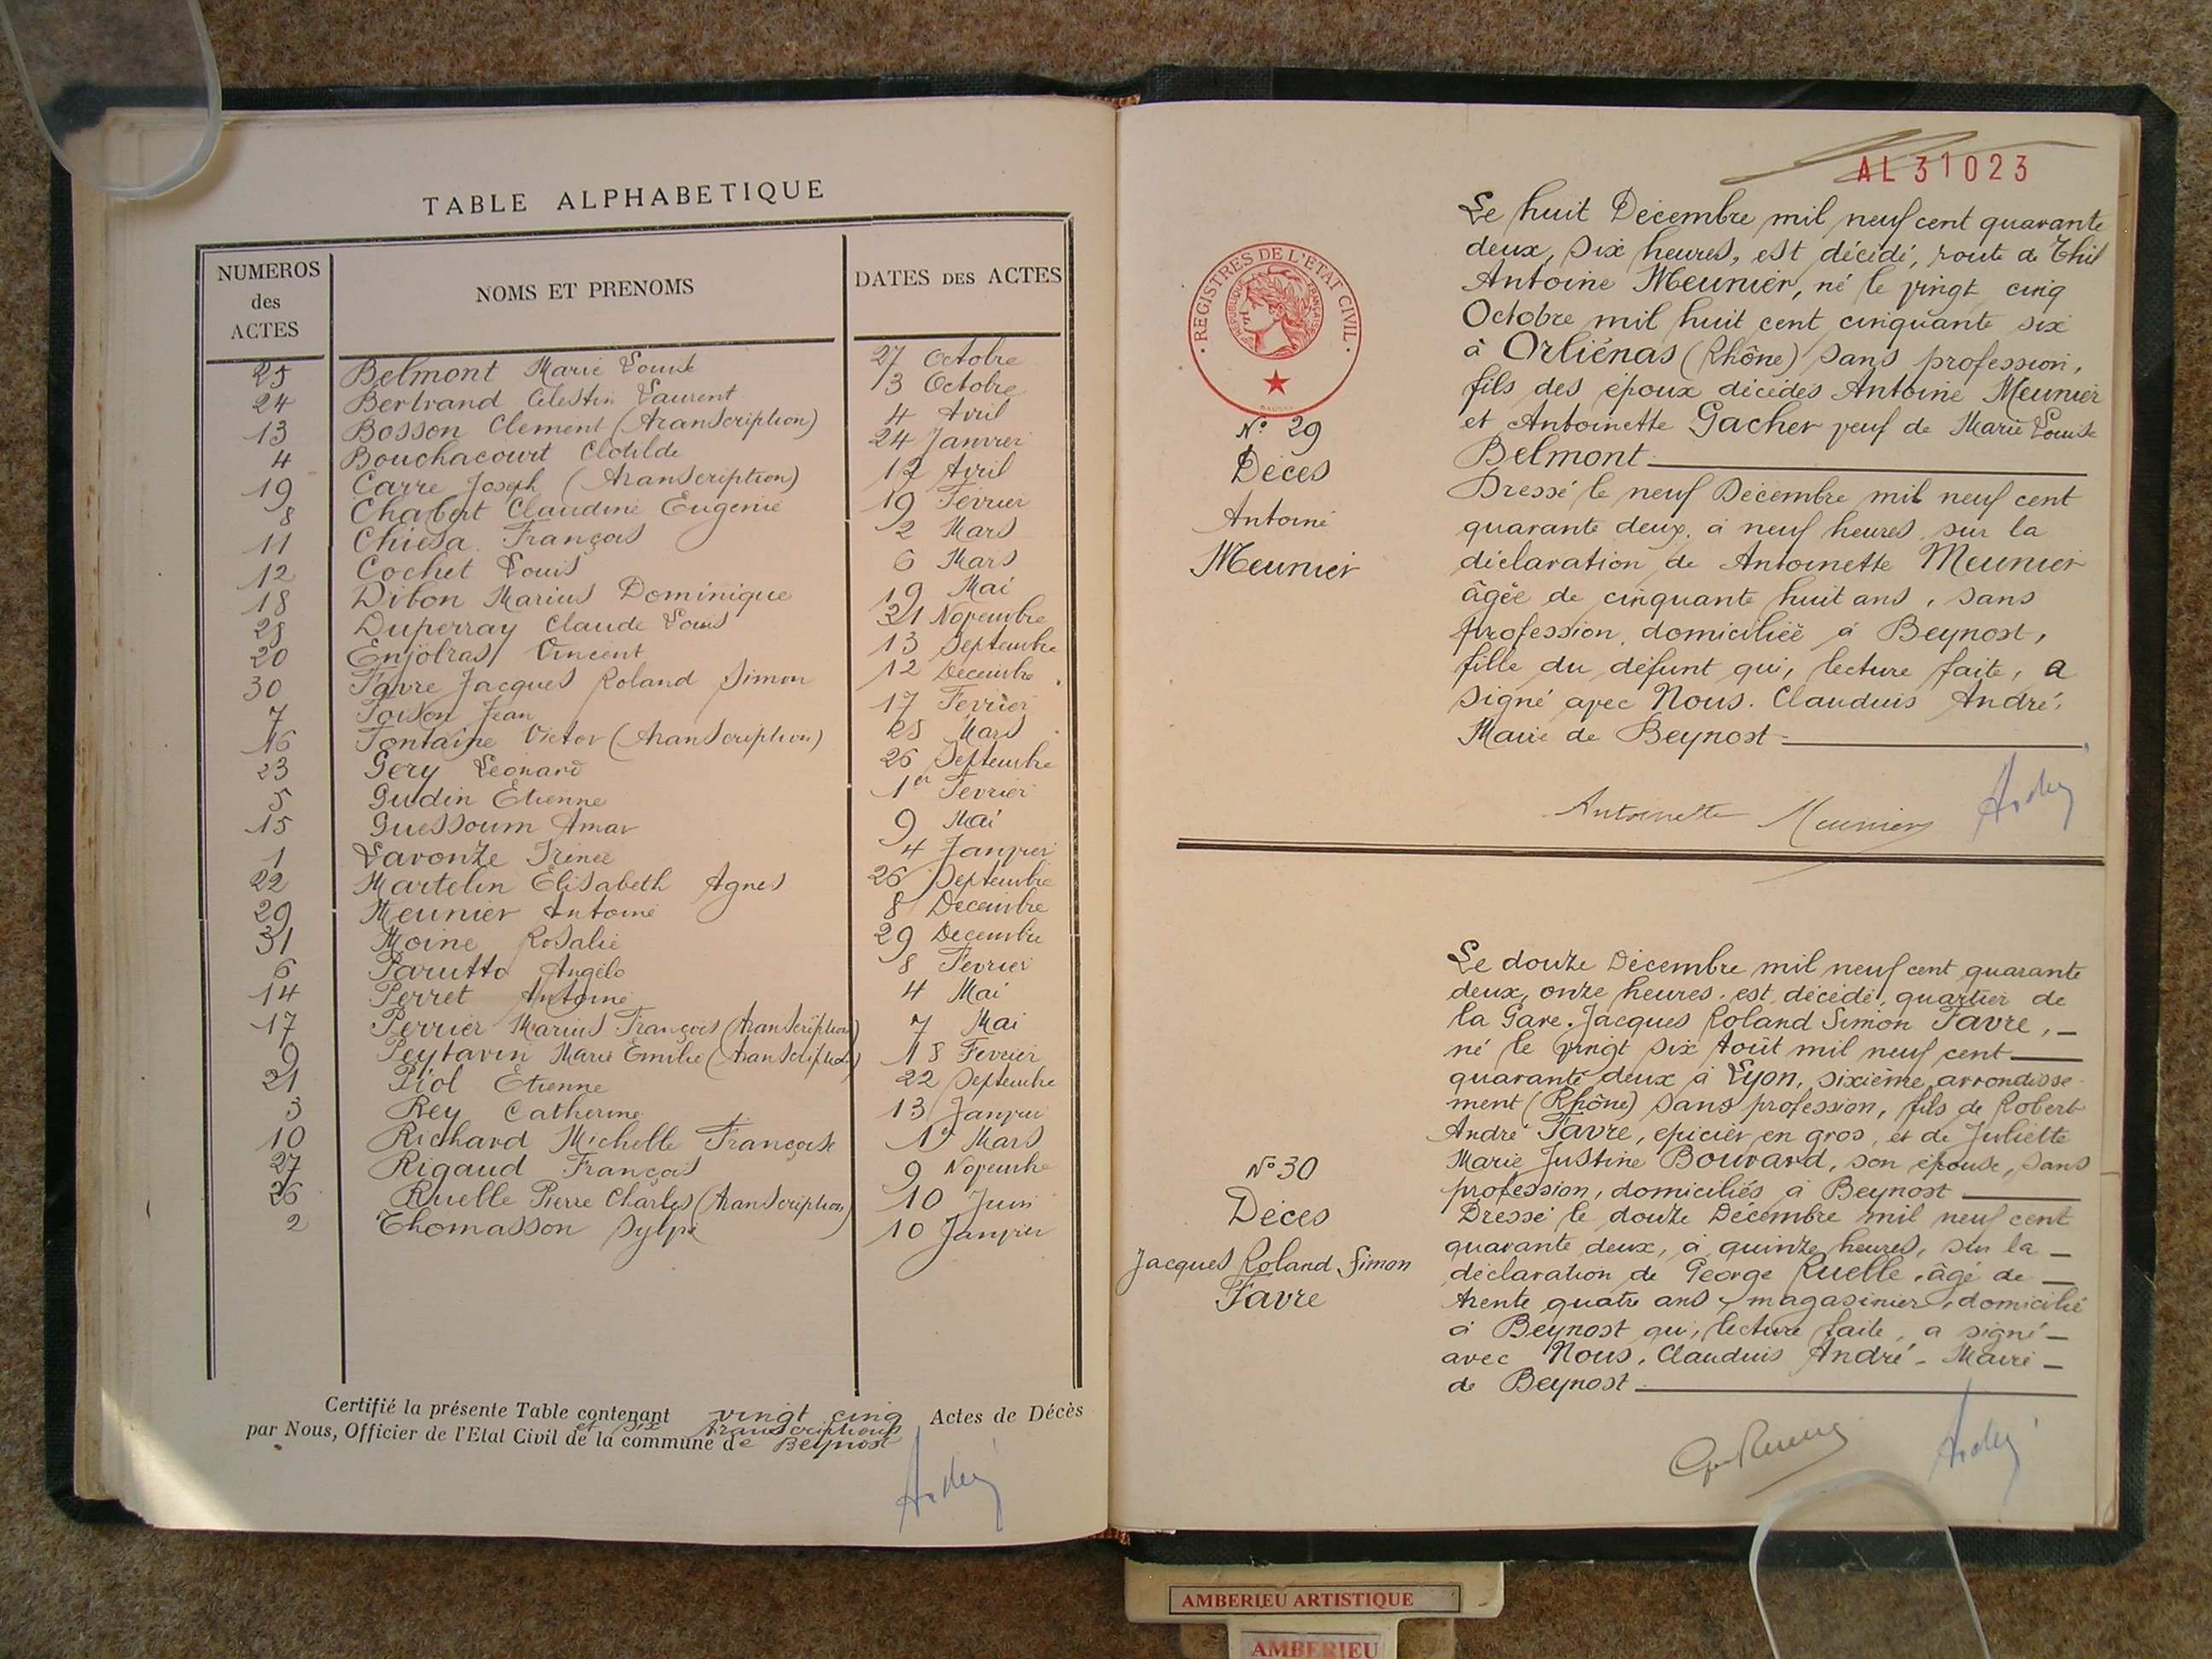 TABLE ALPHABETIQUE
NUMEROS des ACTES NOMS ET PRENOMS DATES DES ACTES
25 Belmont Marie Louise 27 Octobre
24 Bertrand Celestin Laurent 3 Octobre
13 Bosson Clement (Transcription) 4 Avril
4 Bouchacourt Clotilde 24 Janvier
19 Carre Joseph (Transcription) 12 Avril
8 Chabert Claudine Eugenie 19 Février
11 Chiesa François 2 Mars
12 Cochet Louis 6 Mars
18 Dibon Marius Dominique 19 Mai
28 Duperray Claude Louis 21 Novembre
20 Enjolras Vincent 13 Septembre
30 Favre Jacques Roland Simon 12 Decembre
7 Foison Jean 17 Fevrier
16 Fontaine Victor (Transcription) 25 Mars
23 Gery Leonard 26 Septembre
5 Gudin Etienne 1er Fevrier
15 Guessoum Amar 9 Mai
1 Laronze Irénée 4 Janvier
22 Martelin Elisabeth Agnes 26 Septembre
29 Meunier Antoine 8 Decembre
31 Moine Rosalie 29 Decembre
6 Parutto Angelo 8 Fevrier
14 Perret Antoine 4 Mai
17 Perrier Marius François (Transcription) 7 Mai
9 Peytavin Marie Emilie (Transcription) 18 Fevrier
21 Piol Etienne 22 Septembre
3 Rey Catherine 13 Janvier
10 Richard Michelle Françoise 1er Mars
27 Rigaud François 9 Novembre
26 Ruelle Pierre Charles (Transcription) 10 Juin
2 Thomasson Sylvie 10 Janvier
Certifié la présente Table contenant vingt cinq Actes de Décès
et six transcriptions
par Nous, Officier de l'Etat Civil de la commune de Beynost
André
AL 31023
REGISTRES DE L'ETAT CIVIL
REPUBLIQUE FRANÇAISE
N° 29
Déces
Antoine
Meunier
Le huit Décembre mil neuf cent quarante
deux, six heures, est décédé, route de Thil
Antoine Meunier, né le vingt cinq
Octobre mil huit cent cinquante six
à Orliénas (Rhône) sans profession,
fils des époux décédés Antoine Meunier
et Antoinette Gacher veuf de Marie Louise
Belmont
Dressé le neuf Décembre mil neuf cent
quarante deux, à neuf heures sur la
déclaration de Antoinette Meunier
âgée de cinquante huit ans, sans
profession, domiciliée à Beynost,
fille du défunt qui, lecture faite, a
signé avec Nous. Claudius André,
Maire de Beynost
Antoinette Meunier André
N° 30
Déces
Jacques Roland Simon
Favre
Le douze Décembre mil neuf cent quarante
deux, onze heures, est décédé, quartier de
la Gare. Jacques Roland Simon Favre,
né le vingt six Août mil neuf cent
quarante deux à Lyon, sixième arrondisse
ment (Rhône) sans profession, fils de Robert
André Favre, épicier en gros, et de Juliette
Marie Justine Bouvard, son épouse, sans
profession, domiciliés à Beynost
Dressé le douze Décembre mil neuf cent
quarante deux, à quinze heures, sur la
déclaration de George Ruelle, âgé de
trente quatre ans, magasinier, domicilié
à Beynost qui, lecture faite, a signé
avec Nous, Claudius André - Maire
de Beynost
André
AMBERIEU ARTISTIQUE
AMBERIEU